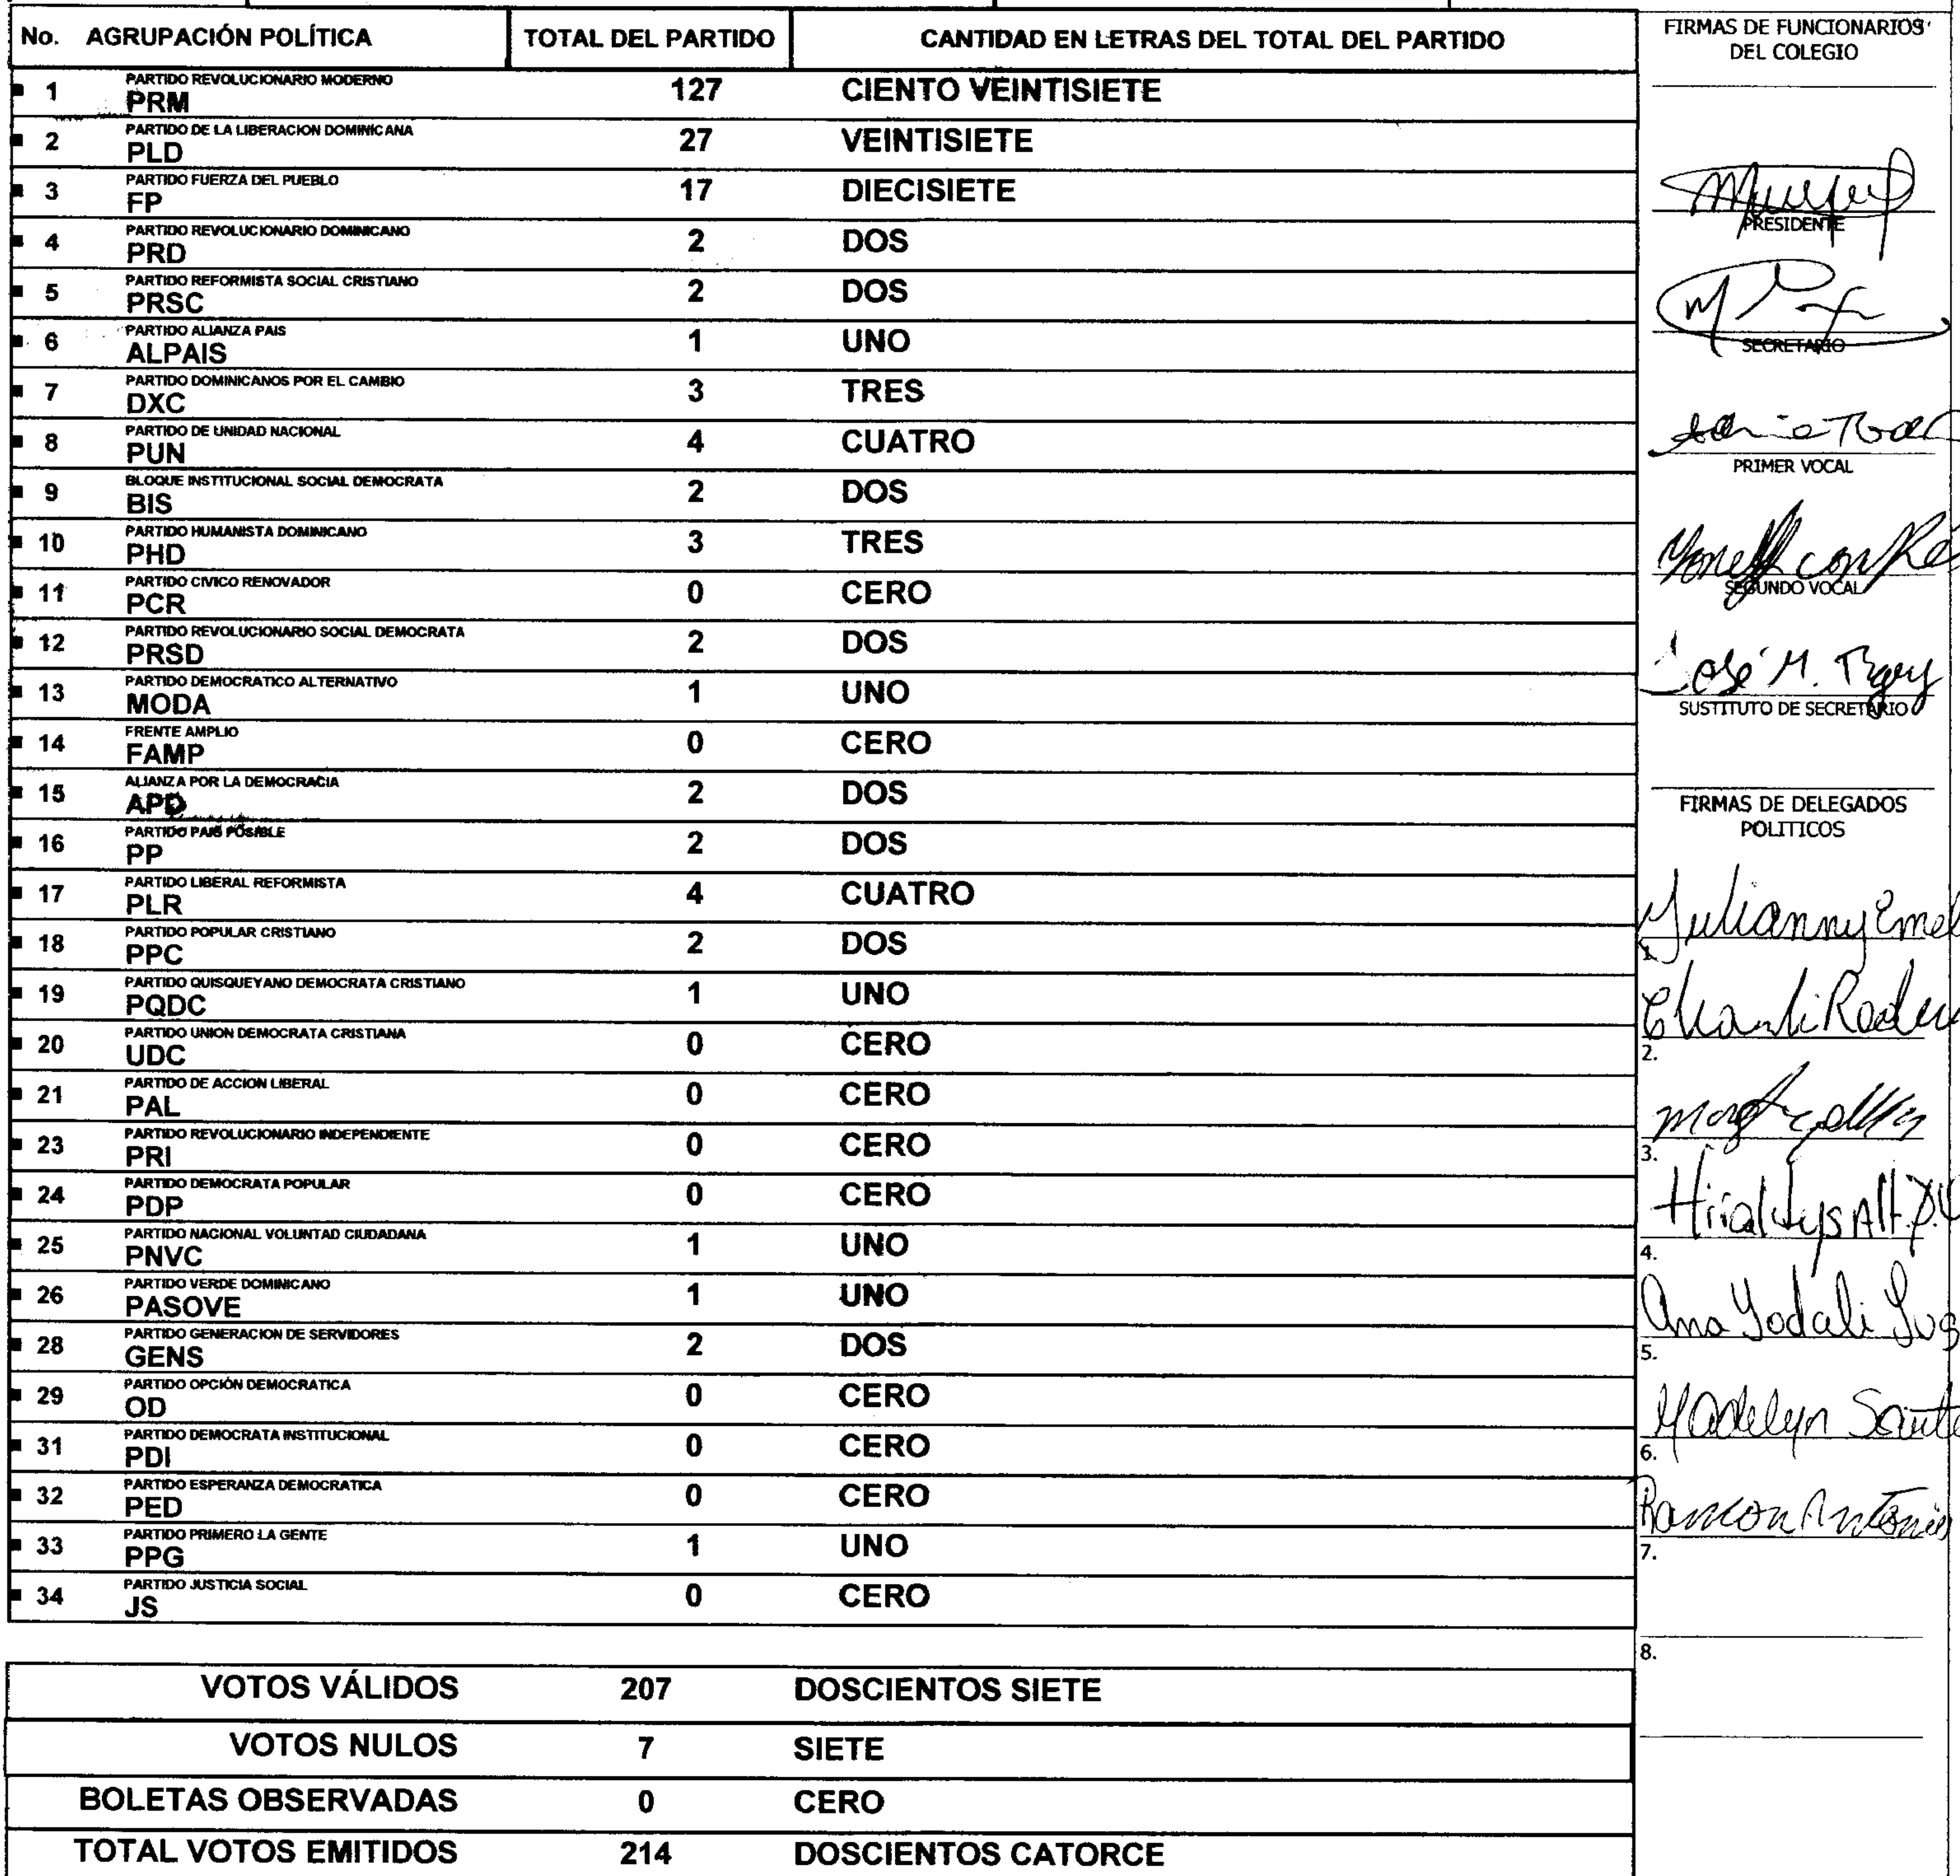 No. AGRUPACIÓN POLÍTICA TOTAL DEL PARTIDO CANTIDAD EN LETRAS DEL TOTAL DEL PARTIDO
1 PARTIDO REVOLUCIONARIO MODERNO
PRM 127 CIENTO VEINTISIETE
2 PARTIDO DE LA LIBERACION DOMINICANA
PLD 27 VEINTISIETE
3 PARTIDO FUERZA DEL PUEBLO
FP 17 DIECISIETE
4 PARTIDO REVOLUCIONARIO DOMINICANO
PRD 2 DOS
5 PARTIDO REFORMISTA SOCIAL CRISTIANO
PRSC 2 DOS
6 PARTIDO ALIANZA PAIS
ALPAIS 1 UNO
7 PARTIDO DOMINICANOS POR EL CAMBIO
DXC 3 TRES
8 PARTIDO DE UNIDAD NACIONAL
PUN 4 CUATRO
9 BLOQUE INSTITUCIONAL SOCIAL DEMOCRATA
BIS 2 DOS
10 PARTIDO HUMANISTA DOMINICANO
PHD 3 TRES
11 PARTIDO CIVICO RENOVADOR
PCR 0 CERO
12 PARTIDO REVOLUCIONARIO SOCIAL DEMOCRATA
PRSD 2 DOS
13 PARTIDO DEMOCRATICO ALTERNATIVO
MODA 1 UNO
14 FRENTE AMPLIO
FAMP 0 CERO
15 ALIANZA POR LA DEMOCRACIA
APD 2 DOS
16 PARTIDO PAIS POSIBLE
PP 2 DOS
17 PARTIDO LIBERAL REFORMISTA
PLR 4 CUATRO
18 PARTIDO POPULAR CRISTIANO
PPC 2 DOS
19 PARTIDO QUISQUEYANO DEMOCRATA CRISTIANO
PQDC 1 UNO
20 PARTIDO UNION DEMOCRATA CRISTIANA
UDC 0 CERO
21 PARTIDO DE ACCION LIBERAL
PAL 0 CERO
23 PARTIDO REVOLUCIONARIO INDEPENDIENTE
PRI 0 CERO
24 PARTIDO DEMOCRATA POPULAR
PDP 0 CERO
25 PARTIDO NACIONAL VOLUNTAD CIUDADANA
PNVC 1 UNO
26 PARTIDO VERDE DOMINICANO
PASOVE 1 UNO
28 PARTIDO GENERACION DE SERVIDORES
GENS 2 DOS
29 PARTIDO OPCIÓN DEMOCRATICA
OD 0 CERO
31 PARTIDO DEMOCRATA INSTITUCIONAL
PDI 0 CERO
32 PARTIDO ESPERANZA DEMOCRATICA
PED 0 CERO
33 PARTIDO PRIMERO LA GENTE
PPG 1 UNO
34 PARTIDO JUSTICIA SOCIAL
JS 0 CERO
VOTOS VÁLIDOS 207 DOSCIENTOS SIETE
VOTOS NULOS 7 SIETE
BOLETAS OBSERVADAS 0 CERO
TOTAL VOTOS EMITIDOS 214 DOSCIENTOS CATORCE
FIRMAS DE FUNCIONARIOS
DEL COLEGIO
PRESIDENTE
SECRETARIO
PRIMER VOCAL
SEGUNDO VOCAL
José M.
SUSTITUTO DE SECRETARIO
FIRMAS DE DELEGADOS
POLITICOS
Julianny
1.
2.
3.
4.
Ana Yodali
5.
Madelyn
6.
Ramon Antonio
7.
8.